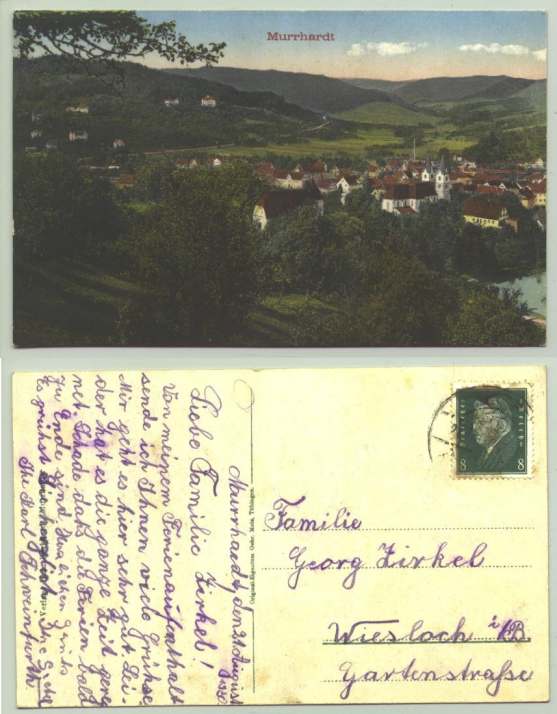 Murrhardt
Murrhardt, den 21. August
Liebe Familie Zirkel!
Von meinem Ferienaufenthalt
sende ich Ihnen viele Grüsse
Mir geht es hier sehr gut. Lei-
der hat es die ganze Zeit gereg
net. Schade daß die Ferien bald
zu Ende sind.
Es grüsst
Ihr Karl Schweinfurth
Familie
Georg Zirkel
Wiesloch i/B.
Gartenstraße
8 8